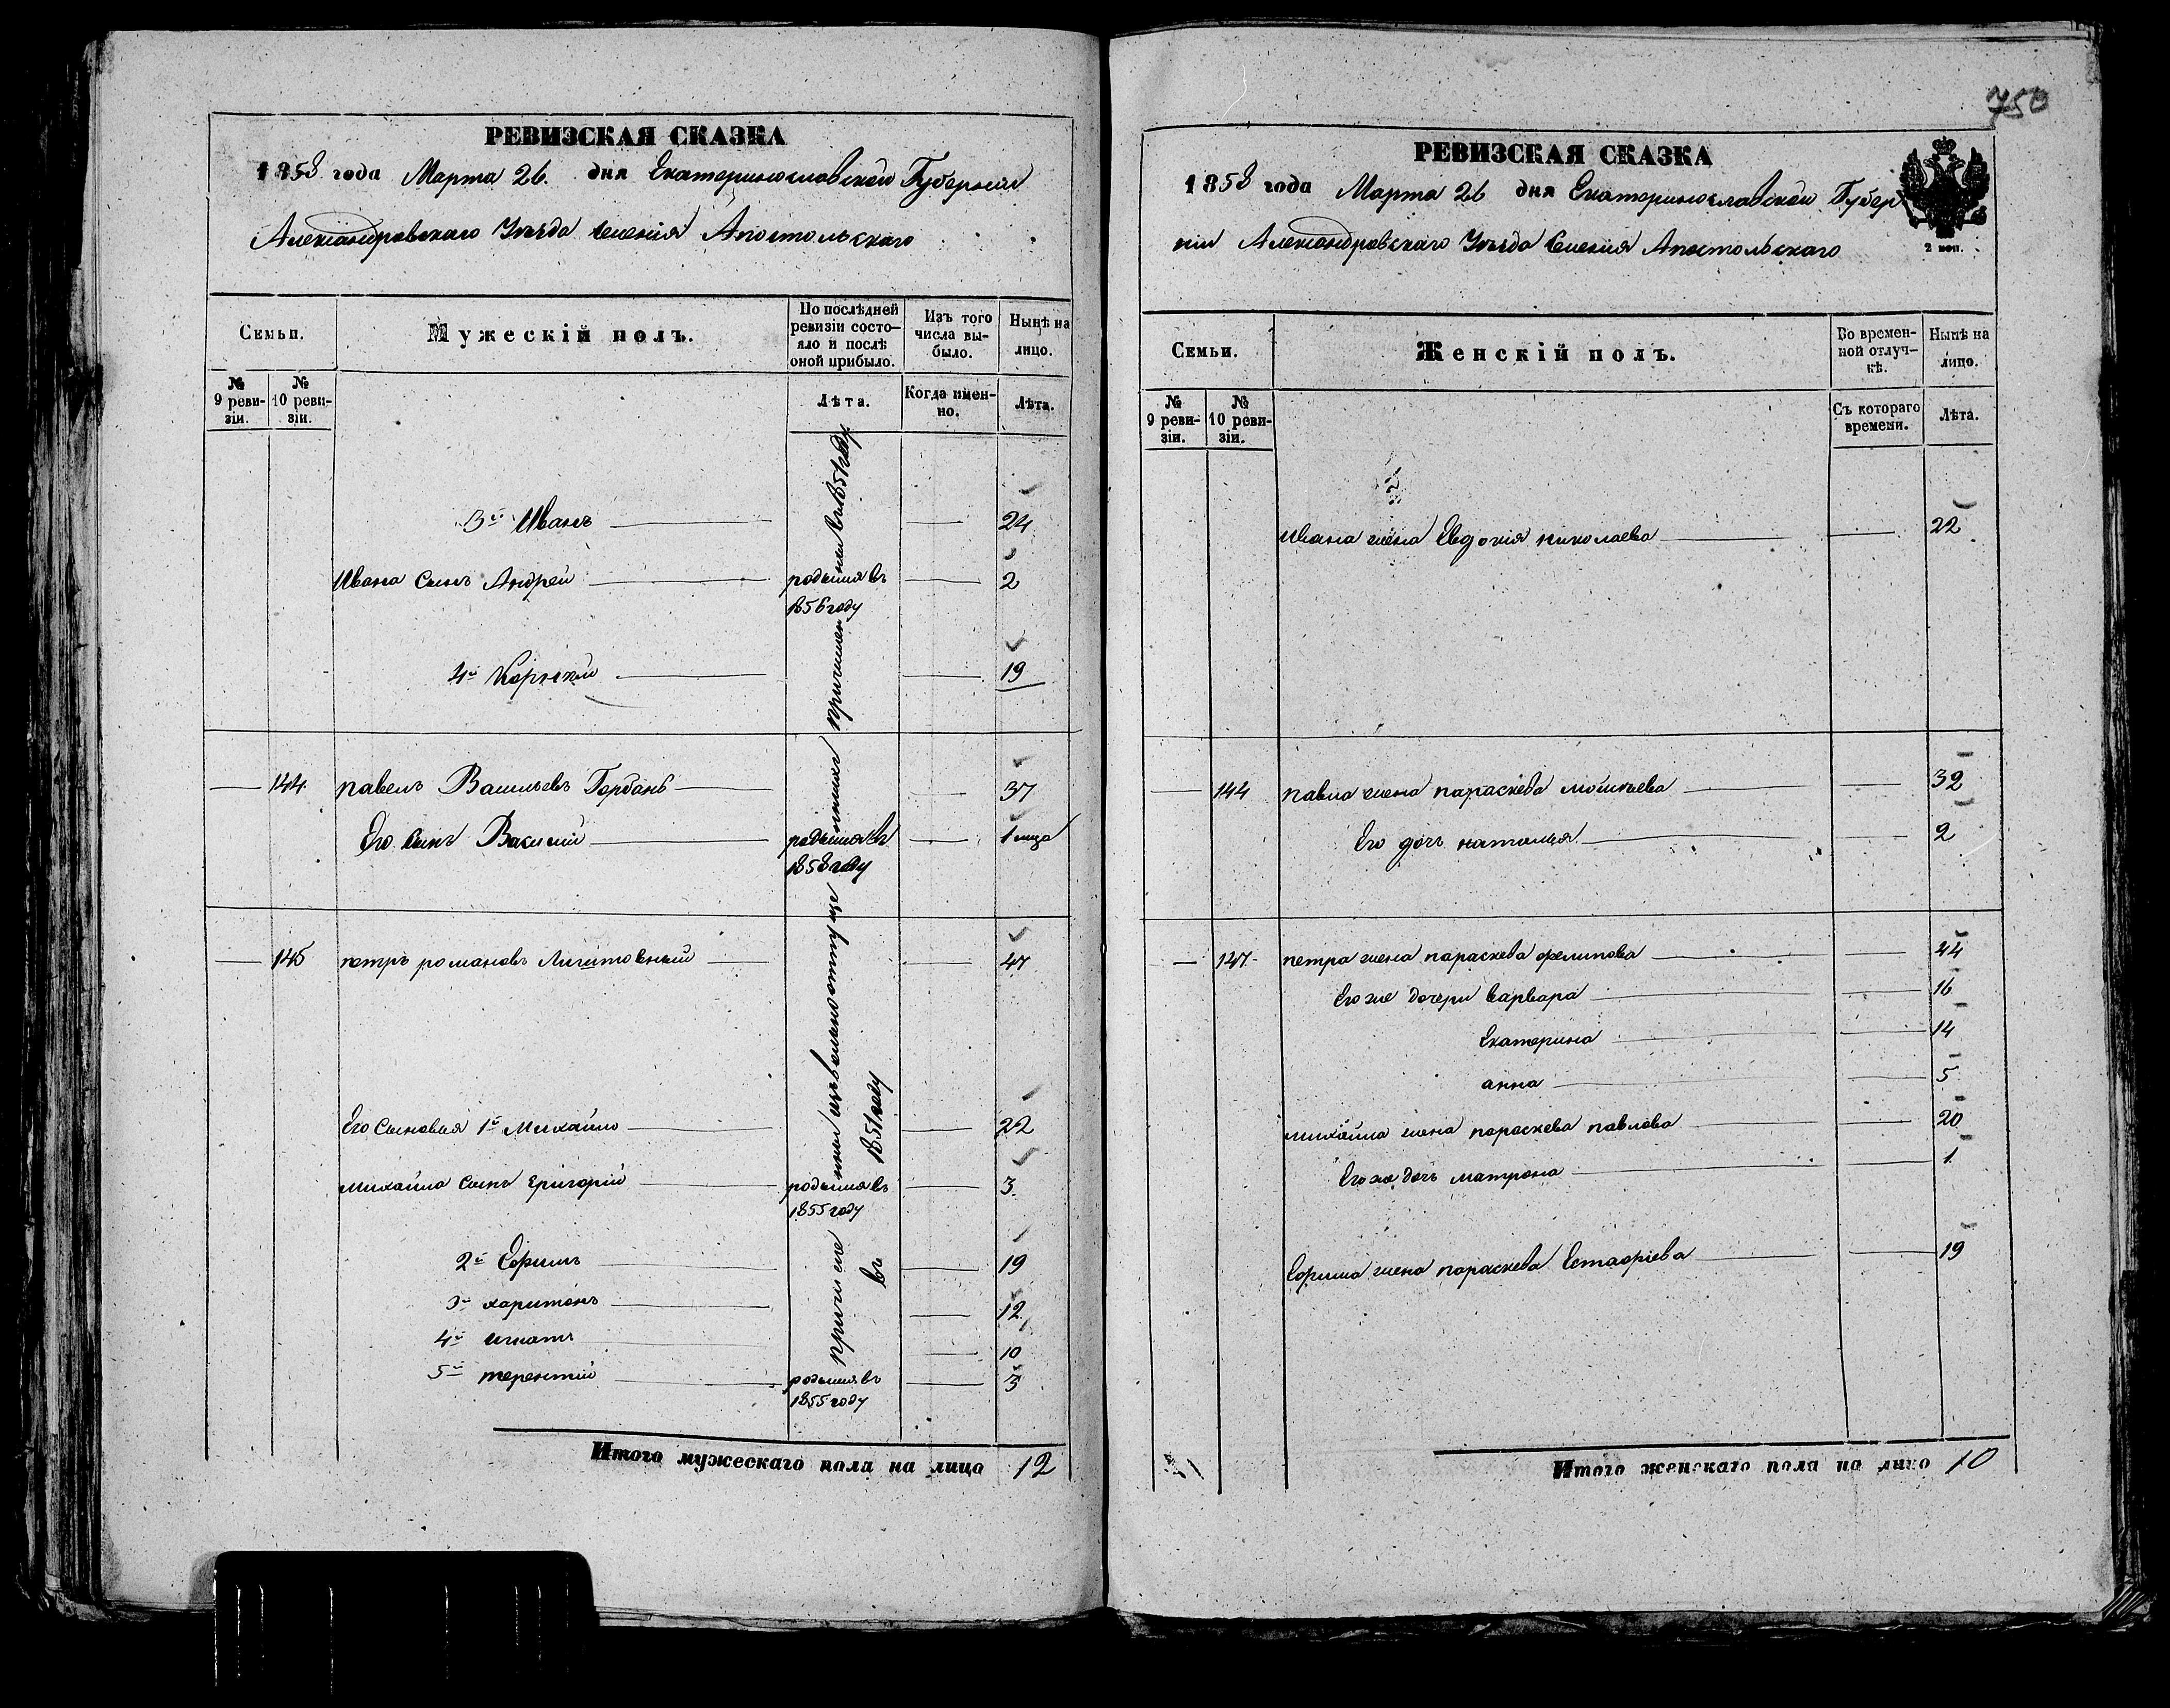 750
РЕВИЗСКАЯ СКАЗКА
1858 года Марта 26. дня Екатеринославской Губерніи
Александровскаго Уезда Селенія Апостольскаго
Семьи.
Мужескій полъ.
По послѣдней ревизіи состо-
яло и послѣ
оной прибыло.
Изъ того
числа вы-
было.
Нынѣ на
лицо.
№
9 реви-
зіи.
№
10 реви-
зіи.
Лѣта.
Когда имен-
но.
Лѣта.
3й Иванъ 24
Ивана Сынъ Андрей родился въ 2
1856 году
4й Корнѣй 19
144. павелъ Васильевъ Горбань 37
Его Сынъ Василий родился въ 1
1858 году
145 петръ романовъ 47
Его Сыновья 1й Михайло 22
михаила Сынъ григорій родился въ 3.
1855 году
2й Ефимъ 19
3й харитонъ 12
4й игнатъ 10
5й терентій родился въ 3
1855 году
въ 1851 году
Итого мужескаго пола на лицо 12
РЕВИЗСКАЯ СКАЗКА
1858 года Марта 26 дня Екатеринославской Губер
ніи Александровскаго Уезда Селенія Апостольскаго
2 коп.
Семьи.
Женскій полъ.
Во времен-
ной отлуч-
кѣ.
Нынѣ на
лицо.
№
9 реви-
зіи.
№
10 реви-
зіи.
Съ котораго
времени.
Лѣта.
Ивана жена Евдокія николаева 22
144 павла жена параскева моисѣева 32
Его дочь наталья 2
147 петра жена параскева филипова 44
Его же дочери варвара 16
Екатерина 14
анна 5
михайла жена параскева павлова 20
Его же дочь матрона 1
Ефима жена параскева Естафіева 19
Итого женскаго пола на лицо 10